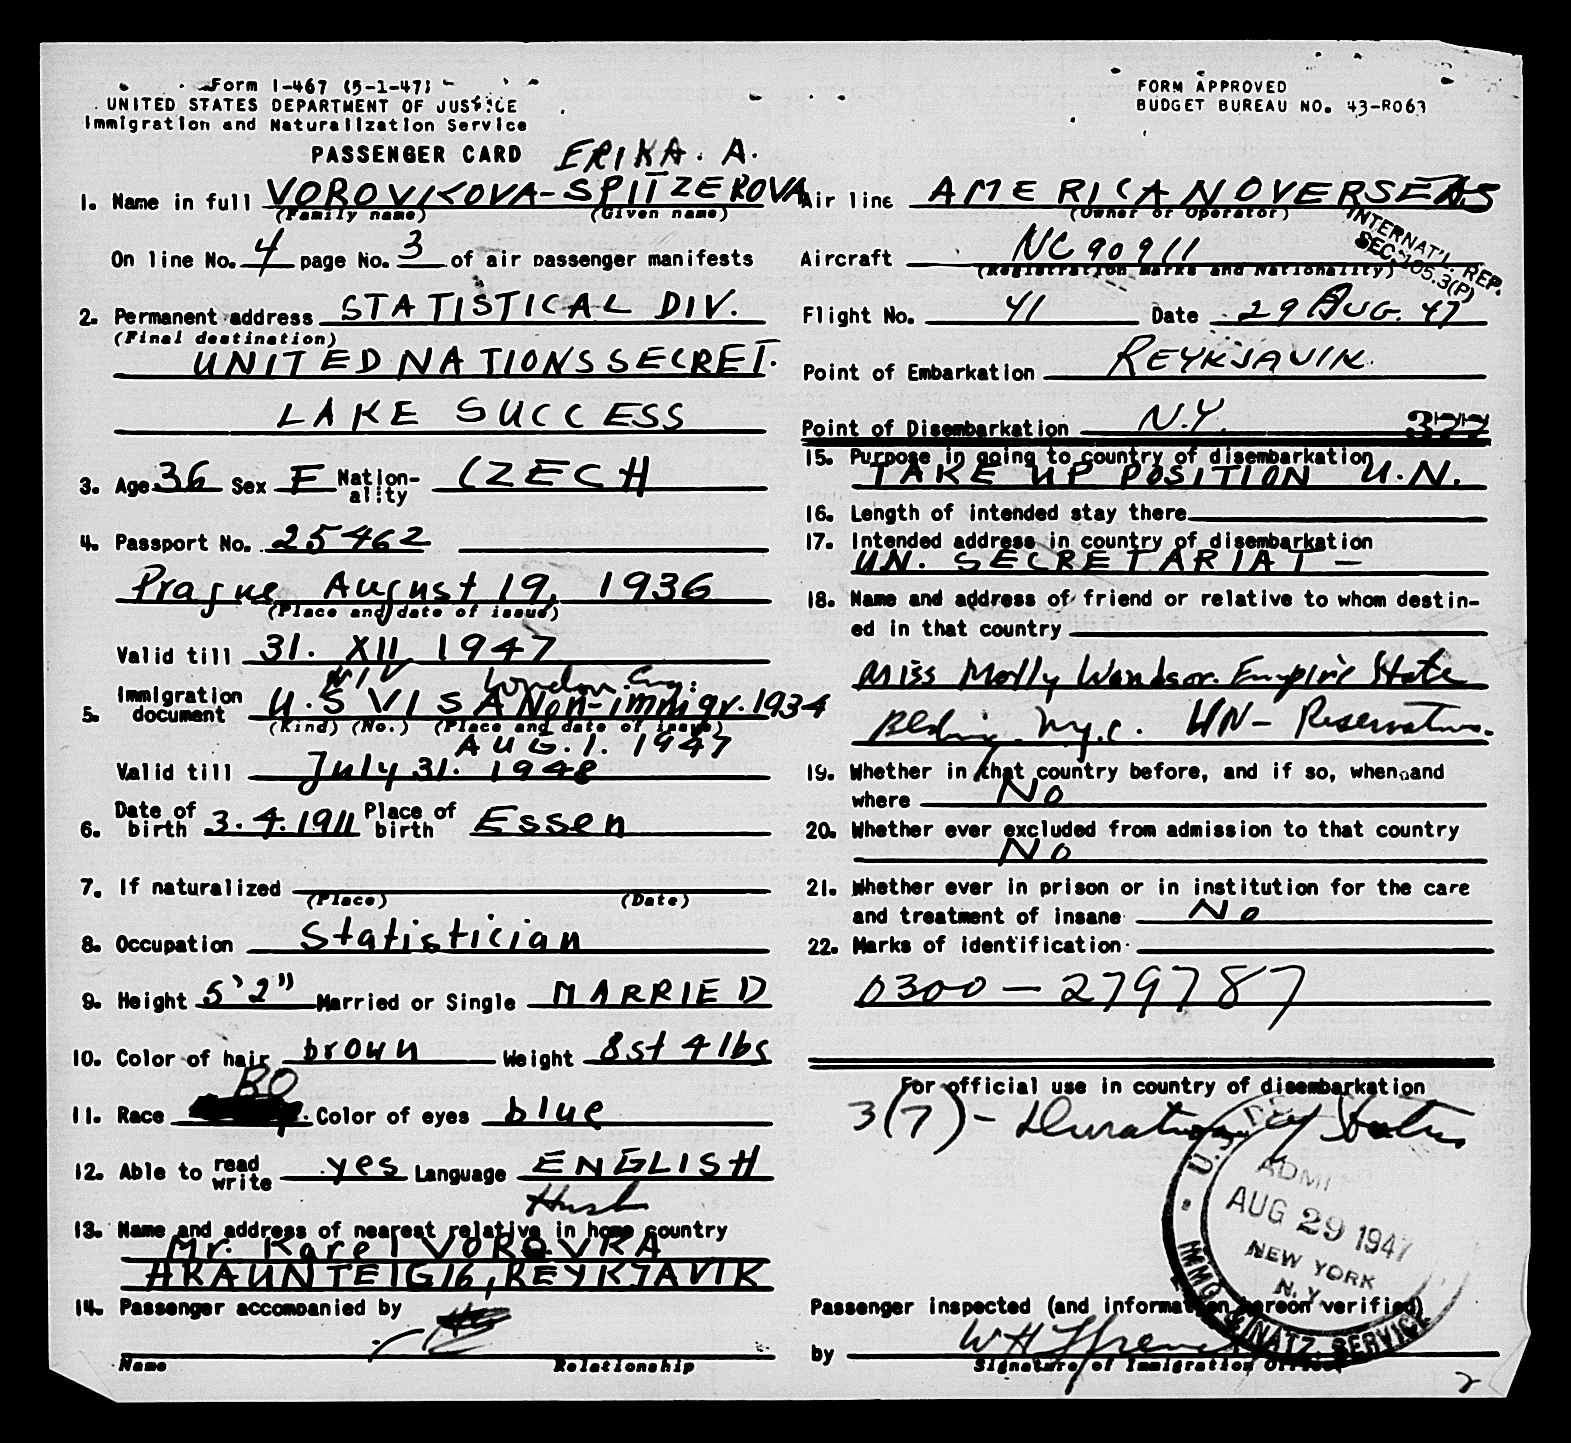 Form I-467 (5-1-47)
UNITED STATES DEPARTMENT OF JUSTICE
Immigration and Naturalization Service
FORM APPROVED
BUDGET BUREAU NO. 43-R063
PASSENGER CARD
ERIKA. A.
1. Name in full VOROVKOVA-SPITZEROVA
(Family name) (Given name)
On line No. 4 page No. 3 of air passenger manifests
2. Permanent address STATISTICAL DIV.
(Final destination)
UNITED NATIONS SECRET.
LAKE SUCCESS
3. Age 36 Sex F Nation-ality CZECH
4. Passport No. 25462
Prague, August 19, 1936
(Place and date of issue)
Valid till 31. XII 1947
NIV London. Eng:
5. Immigration document U.S VISA Non-immigr. 1934
(Kind) (No.) (Place and date of issue)
AUG. 1. 1947
Valid till July 31. 1948
6. Date of birth 3.4.1911 Place of birth Essen
7. If naturalized
(Place) (Date)
8. Occupation Statistician
9. Height 5'2" Married or Single MARRIED
10. Color of hair brown Weight 8st 4lbs
11. Race Color of eyes blue
12. Able to read write yes Language ENGLISH
Husb
13. Name and address of nearest relative in home country
Mr. Karel VOROVKA
HRAUNTEIG 16, REYKJAVIK
14. Passenger accompanied by
Name Relationship
Air line AMERICAN OVERSEAS
(Owner or Operator)
INTERNAT'L. REP.
SEC. 105.3(P)
Aircraft NC 90911
(Registration marks and Nationality)
Flight No. 41 Date 29 AUG. 47
Point of Embarkation REYKJAVIK.
Point of Disembarkation N.Y. 377
15. Purpose in going to country of disembarkation
TAKE UP POSITION U.N.
16. Length of intended stay there
17. Intended address in country of disembarkation
UN. SECRETARIAT —
18. Name and address of friend or relative to whom destin-
ed in that country
Miss Molly Windsor. Empire State
Blding. N.Y.C. UN - Reservations.
19. Whether in that country before, and if so, when and
where No
20. Whether ever excluded from admission to that country
No
21. Whether ever in prison or in institution for the care
and treatment of insane No
22. Marks of identification
0300 - 279787
For official use in country of disembarkation
3(7) - Duration of Status
U.S. DE
ADMI
AUG 29 1947
NEW YORK
N.Y.
IMMIG. & NATZ. SERVICE
Passenger inspected (and information hereon verified)
by
Signature of Immigration Officer
2